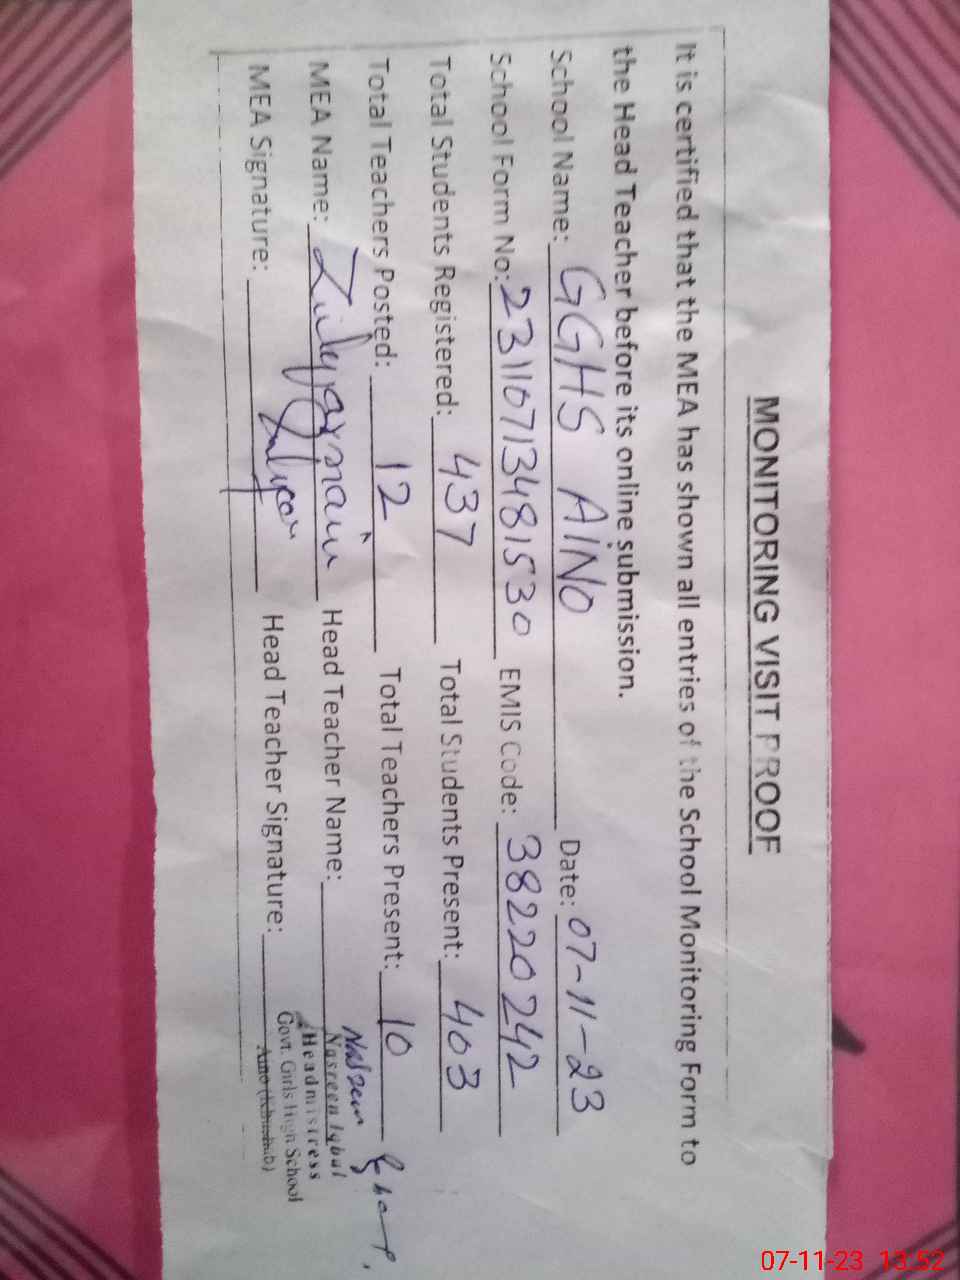 MONITORING VISIT PROOF
It is certified that the MEA has shown all entries of the School Monitoring Form to
the Head Teacher before its online submission.
School Name: GGHS AINO Date: 07-11-23
School Form No: 23110713481530 EMIS Code: 38220242
Total Students Registered: 437 Total Students Present: 403
Total Teachers Posted: 12 Total Teachers Present: 10
MEA Name: Head Teacher Name:
MEA Signature: Head Teacher Signature:
Nasreen Iqbal
Headmistress
Govt. Girls High School
Aino (Khushab)
07-11-23 13:52